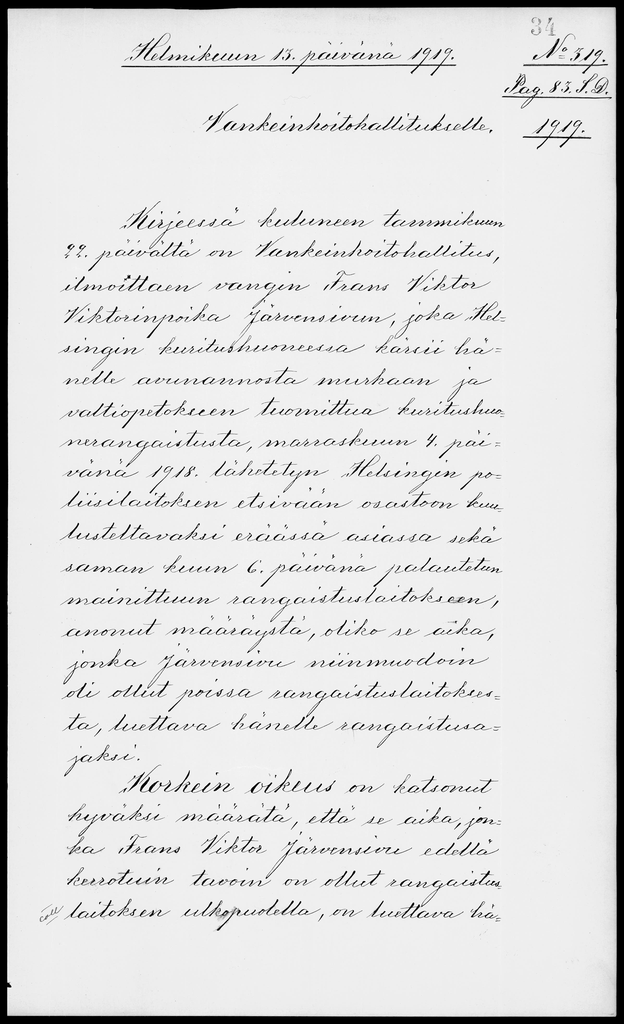 34
Helmikuun 13. päivänä 1919.
No 319.
Pag. 83. S. D.
1919.
Vankeinhoitohallitukselle.
Kirjeessä kuluneen tammikuun
22. päivältä on Vankeinhoitohallitus,
ilmoittaen vangin Frans Viktor
Viktorinpoika Järvensivun, joka Hel=
singin kuritushuoneessa kärsii hä=
nelle avunannosta murhaan ja
valtiopetokseen tuomittua kuritushuo=
nerangaistusta, marraskuun 4. päi=
vänä 1918. lähetetyn Helsingin po=
liisilaitoksen etsivään osastoon kuu=
lusteltavaksi eräässä asiassa sekä
saman kuun 6. päivänä palautetun
mainittuun rangaistuslaitokseen,
anonut määräystä, oliko se aika,
jonka Järvensivu niinmuodoin
oli ollut poissa rangaistuslaitokses=
ta, luettava hänelle rangaistusa=
jaksi.
Korkein oikeus on katsonut
hyväksi määrätä, että se aika, jon=
ka Frans Viktor Järvensivu edellä
kerrotuin tavoin on ollut rangaistus=
laitoksen ulkopuolella, on luettava hä=